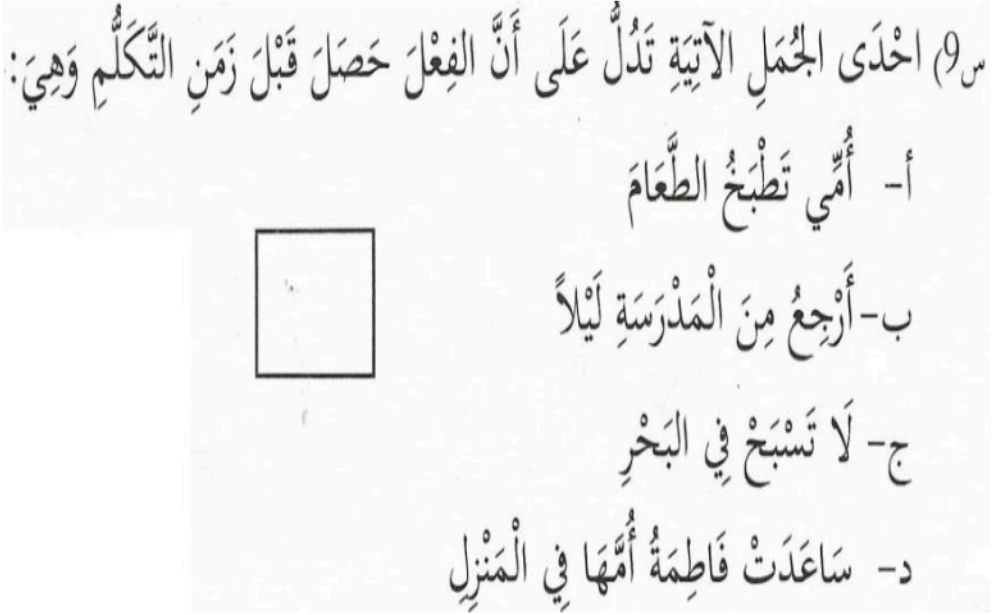 س9) احْدَى الجُمَلِ الآتِيَةِ تَدُلُّ عَلَى أَنَّ الفِعْلَ حَصَلَ قَبْلَ زَمَنِ التَّكَلُّمِ وَهِيَ:
أ- أُمِّي تَطْبَخُ الطَّعَامَ
ب- أَرْجِعُ مِنَ الْمَدْرَسَةِ لَيْلاً
ج- لَا تَسْبَحْ فِي البَحْرِ
د- سَاعَدَتْ فَاطِمَةُ أُمَّهَا فِي الْمَنْزِلِ